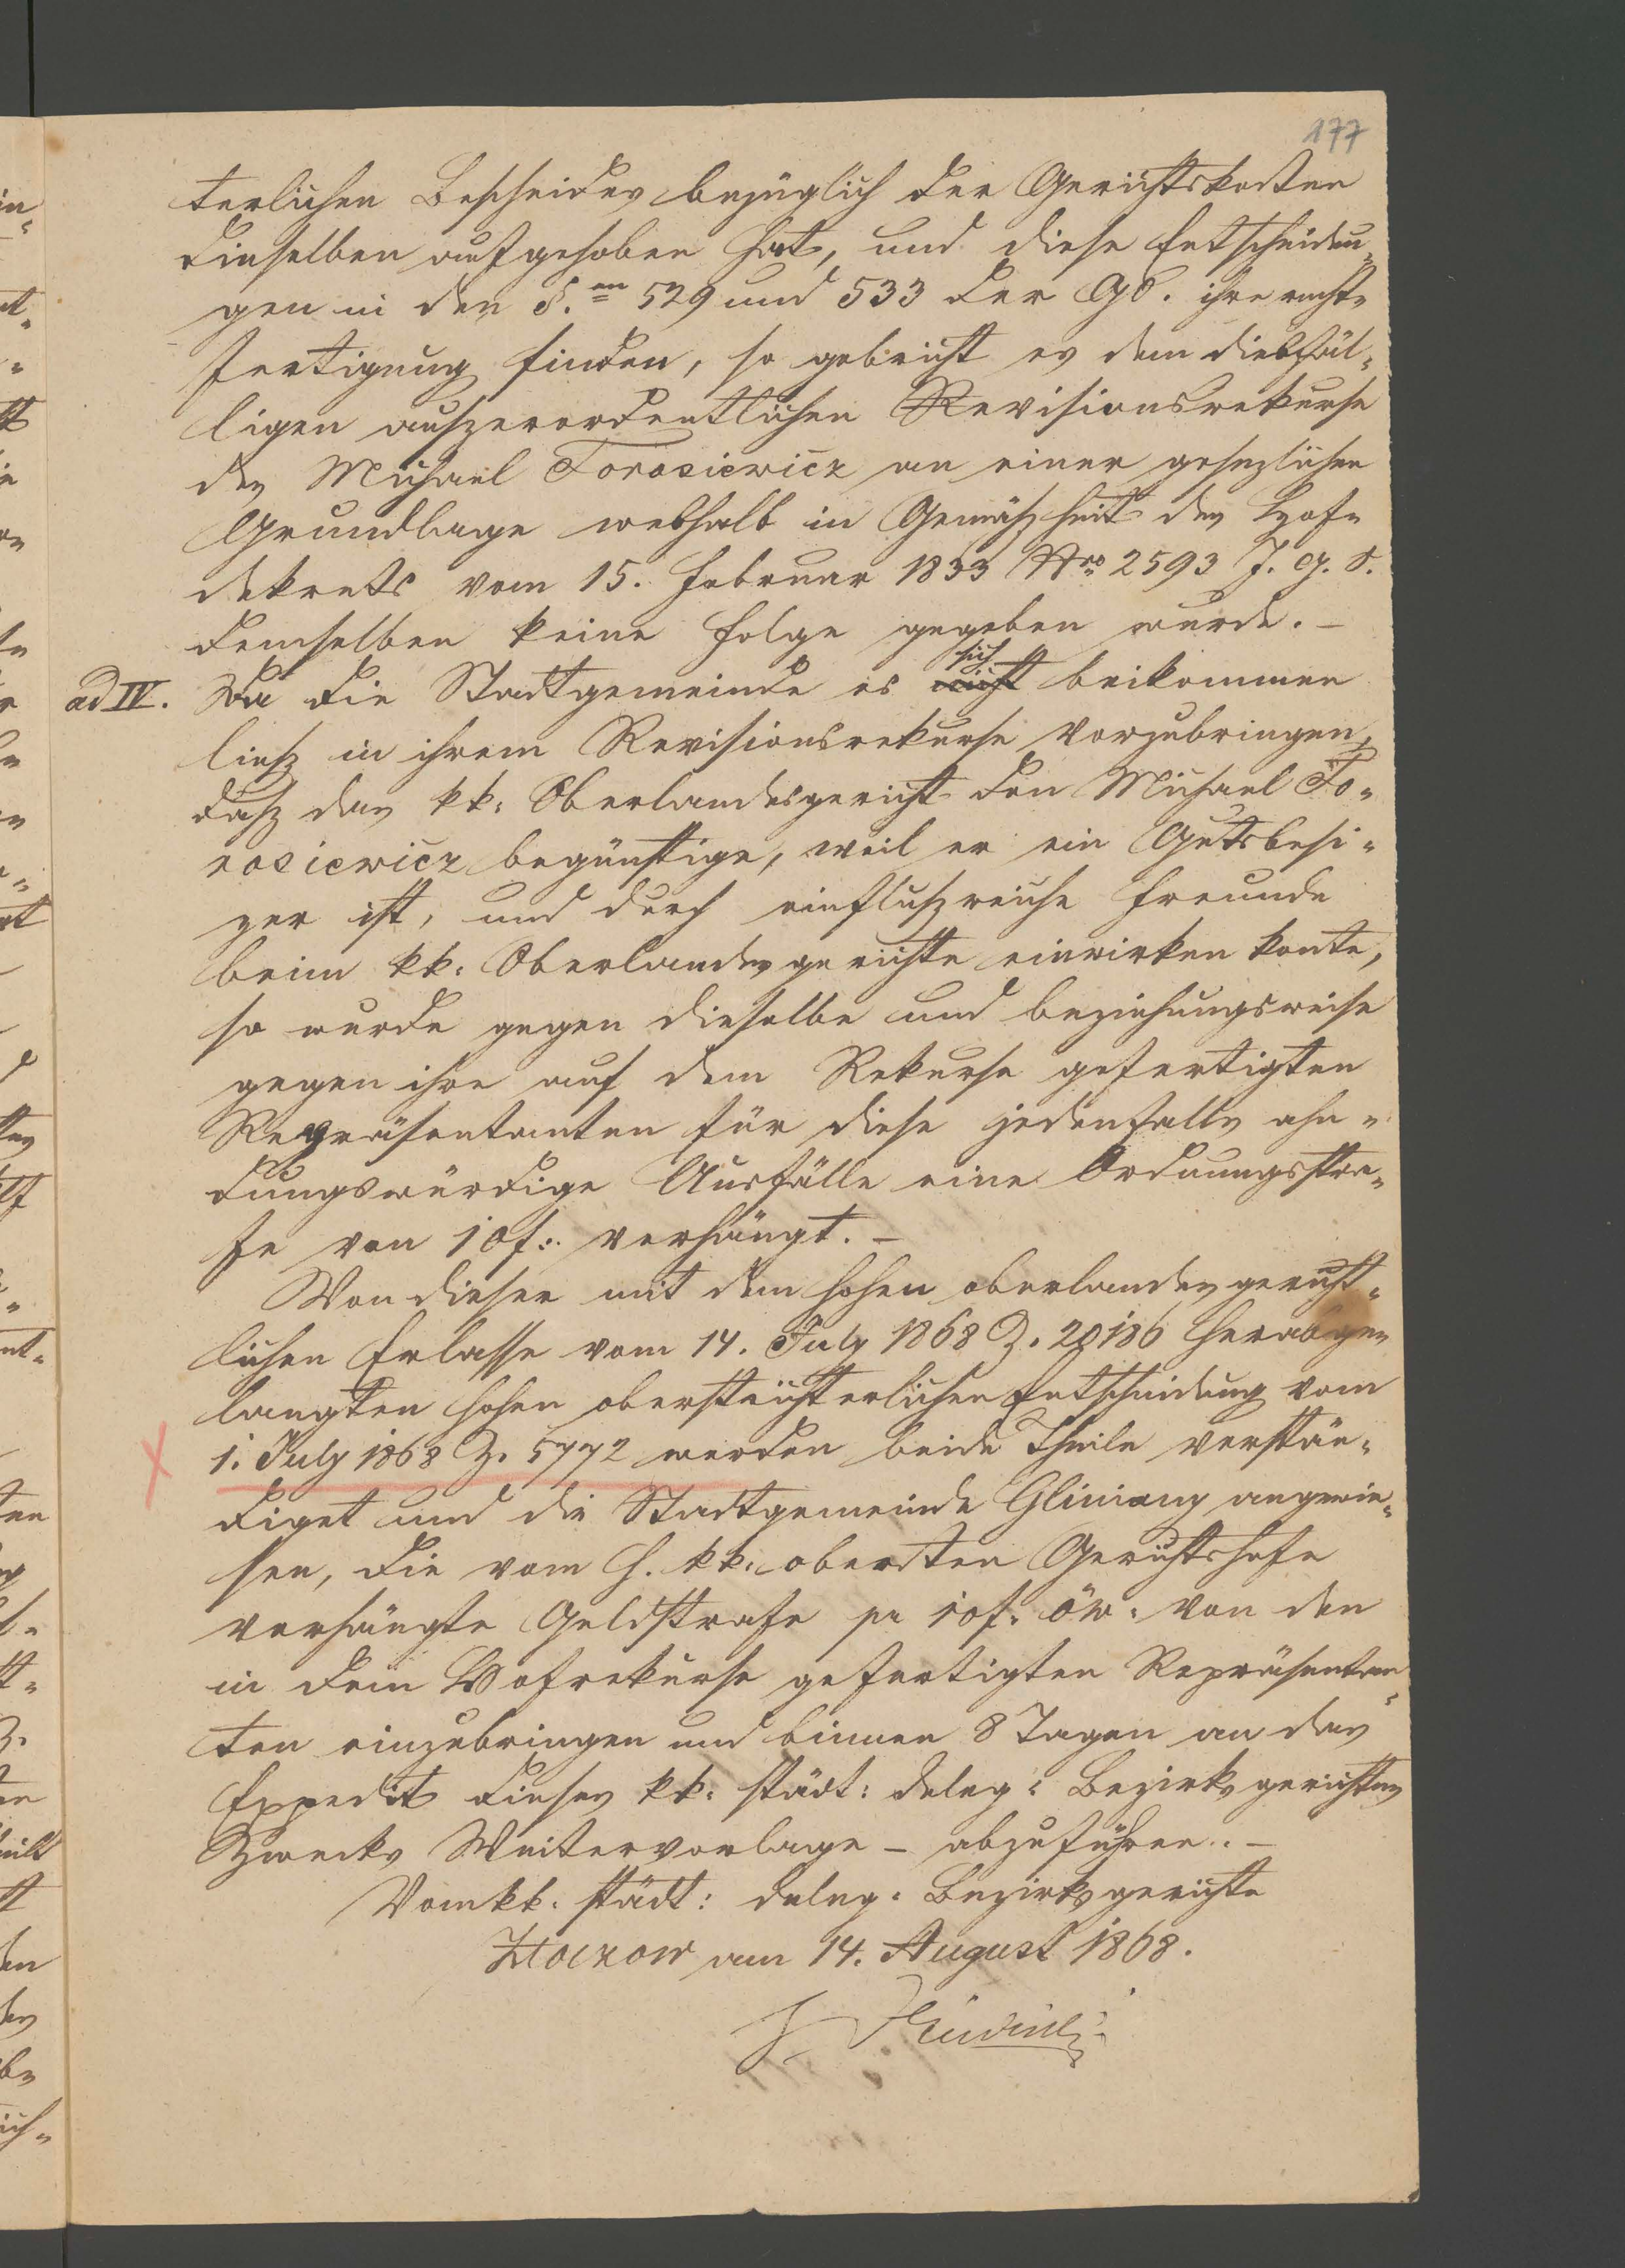 177
terlichen Bescheides bezüglich der Gerichtskosten
dieselben aufgehoben hat, und diese Entscheidun-
gen in den §.en 529 und 533 der GO. ihre recht-
fertigung finden, so gebricht es dem dießfäl-
ligen auszerordentlichen Revisionsrekurse
des Michael Torosiewicz an einer gesezlichen
Grundlage weßhalb in Gemäszheit des Hof-
dekrets vom 15. Februar 1833 Nro 2593 J. G. S.
demselben keine Folge gegeben wurde. –
ad IV. Da die Stadtgemeinde es sich beikommen
liesz in ihrem Revisionsrekurse vorzubringen,
dasz das kk: Oberlandesgericht den Michael To-
rosiewicz begünstige, weil er ein Gutsbesi-
zer ist, und durch einfluszreiche Freunde
beim kk: Oberlandesgerichte einwirken konte,
so wurde gegen dieselbe und beziehungsweise
gegen ihre auf dem Rekurse gefertigten
Repräsentanten für diese jedenfalls ahn-
dungswürdige Ausfälle eine Ordnungsstra-
fe von 10 f: verhängt. –
Von dieser mit dem hohen oberlandesgericht-
lichen Erlasse vom 14. July 1868 Z. 20186 herabge-
langten hohen oberstrichterlichen Entscheidung vom
1. July 1868 Z. 5772 werden beide Theile verstän-
diget und die Stadtgemeinde Gliniany angewie-
sen, die vom h. kk: obersten Gerichtshofe
verhängte Geldstrafe pr 10 f. öw. von den
in dem Hofrekurse gefertigten Repräsentan-
ten einzubringen und binnen 8 Tagen an das
Expedit dieses kk: städt: deleg: Bezirksgerichtes
Zwecks Weitervorlage – abzuführen. –
Vom kk. städt: deleg: Bezirksgerichte
Złoczow am 14. August 1868.